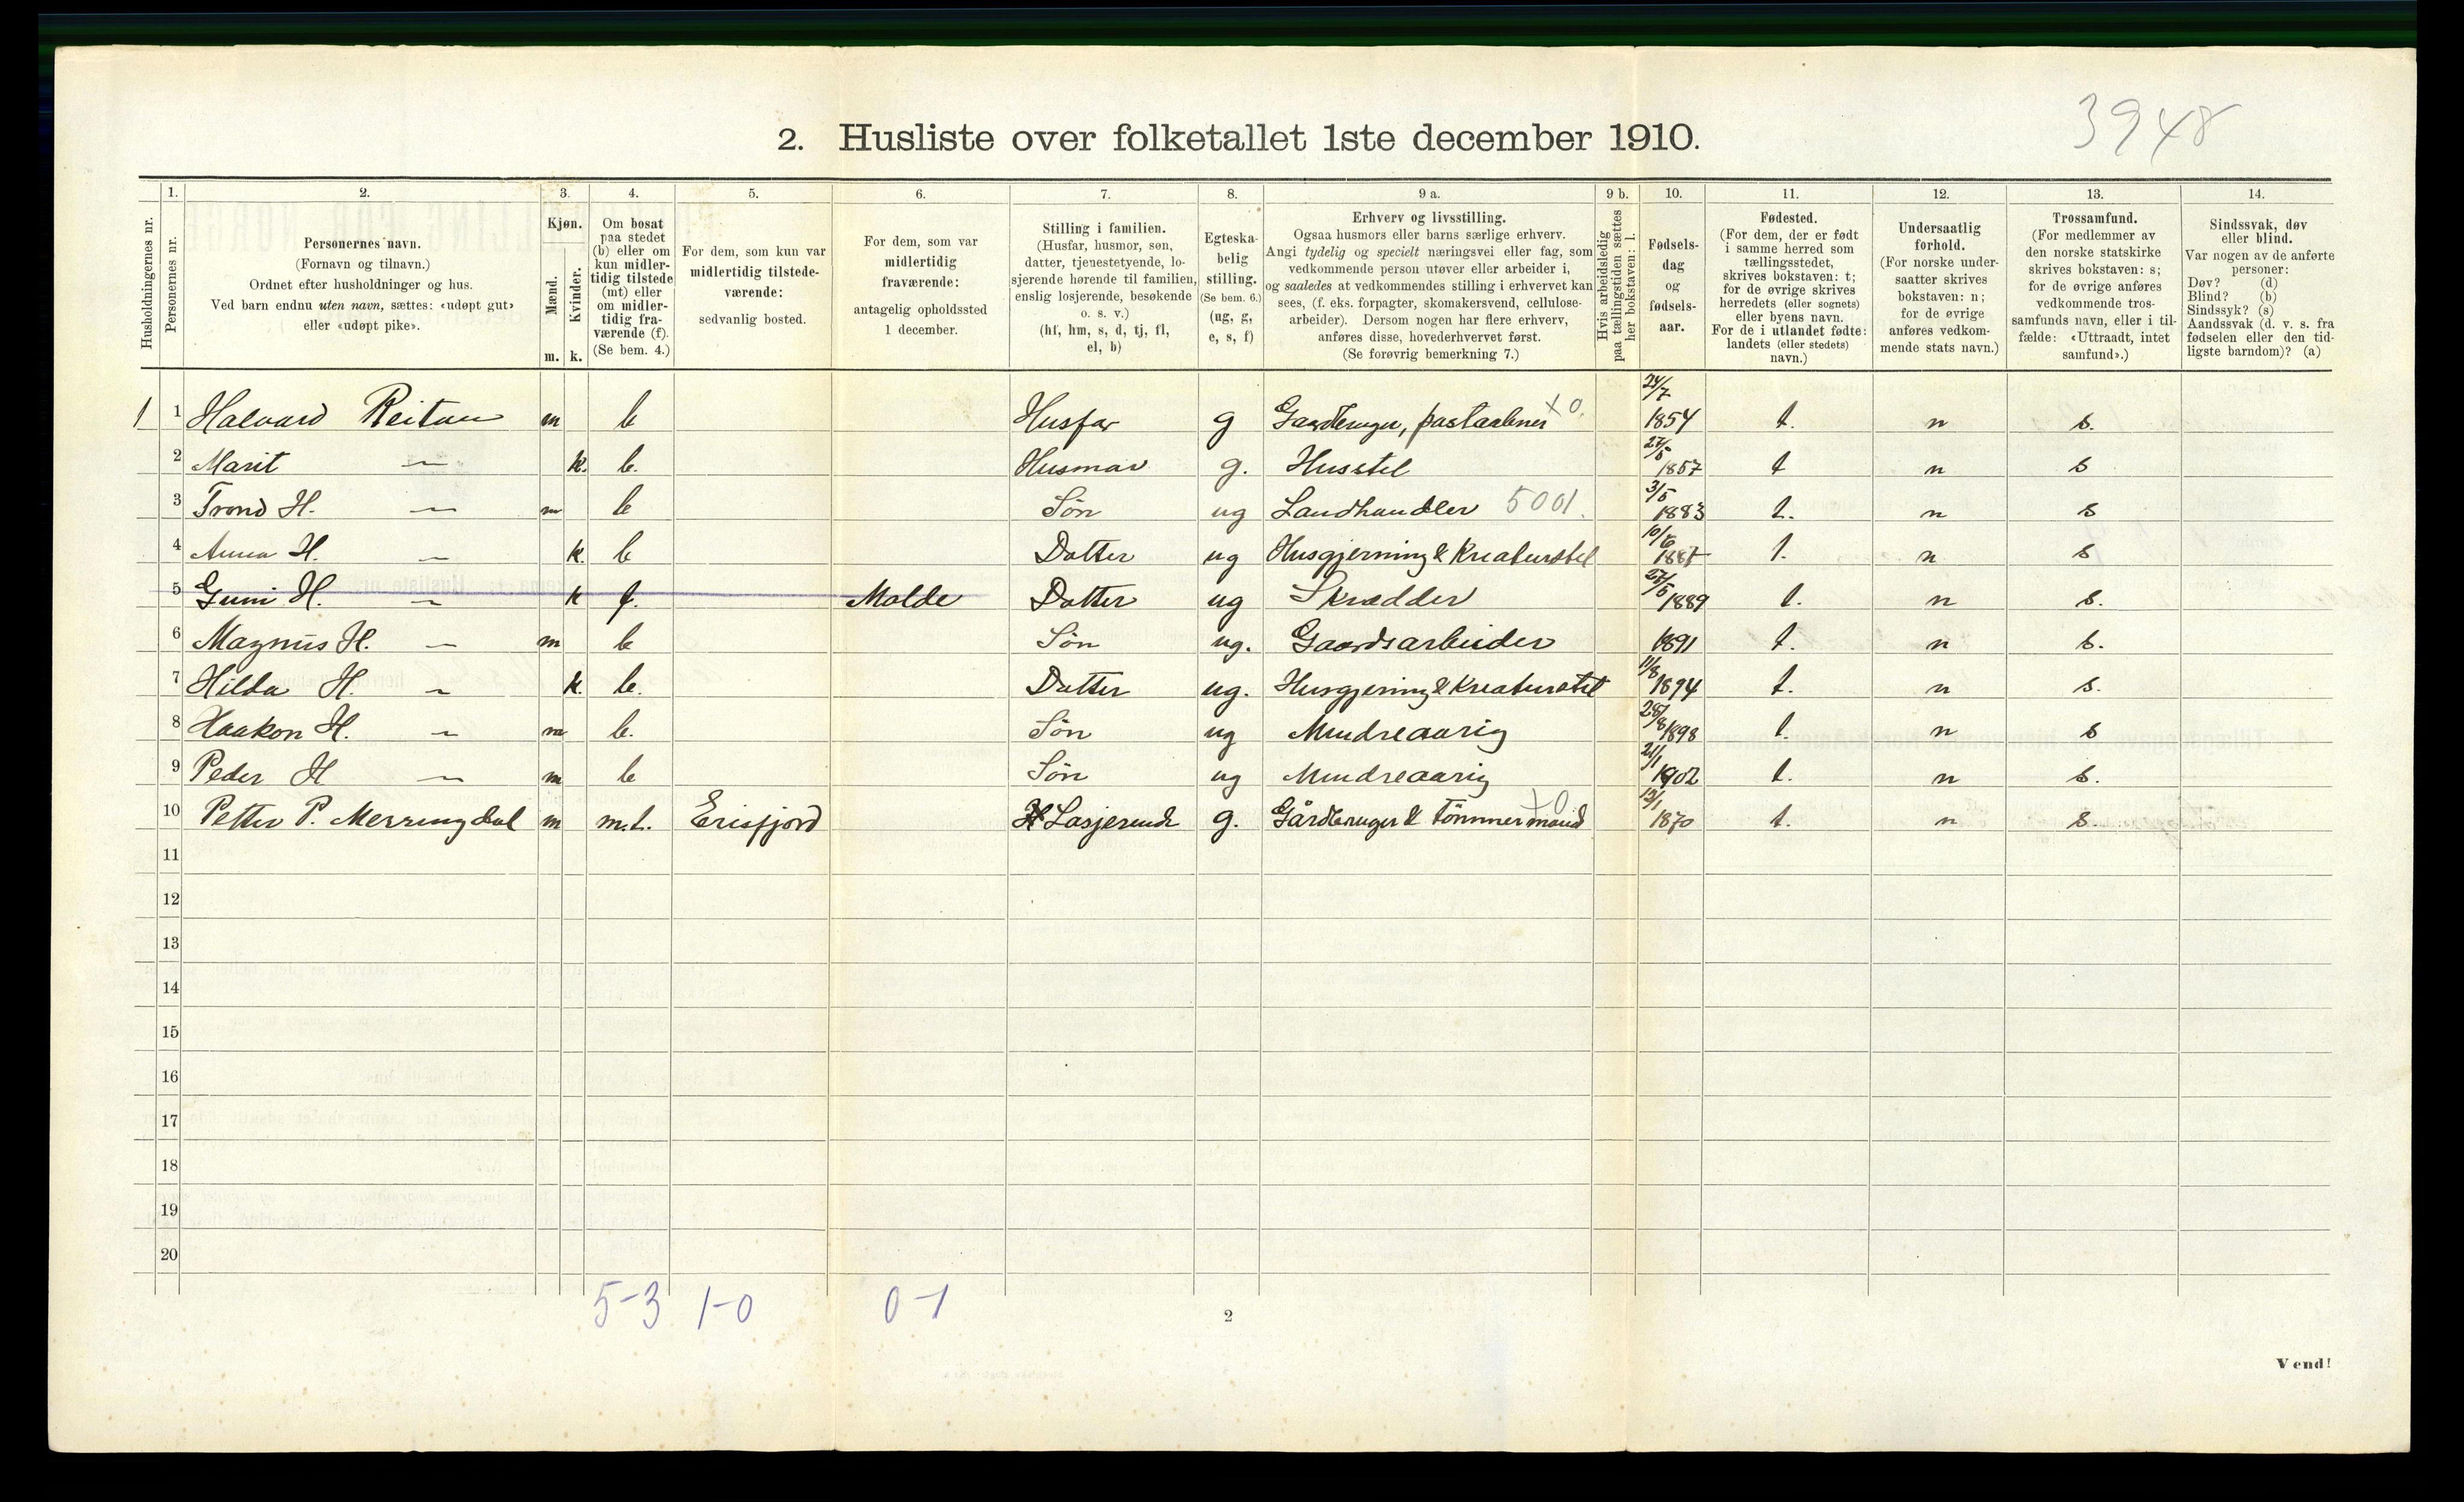 3948
2. Husliste over folketallet 1ste december 1910.
Husholdningernes nr.
1.
Personernes nr.
2.
Personernes navn.
(Fornavn og tilnavn.)
Ordnet efter husholdninger og hus.
Ved barn endnu uten navn, sættes: «udøpt gut»
eller «udøpt pike».
3.
Kjøn.
Mænd.
Kvinder.
m. k.
4.
Om bosat
paa stedet
(b) eller om
kun midler-
tidig tilstede
(mt) eller
om midler-
tidig fra-
værende (f).
(Se bem. 4.)
5.
For dem, som kun var
midlertidig tilstede-
værende:
sedvanlig bosted.
6.
For dem, som var
midlertidig
fraværende:
antagelig opholdssted
1 december.
7.
Stilling i familien.
(Husfar, husmor, søn,
datter, tjenestetyende, lo-
sjerende hørende til familien,
enslig losjerende, besøkende
o. s. v.)
(hf, hm, s, d, tj, fl,
el, b)
8.
Egteska-
belig
stilling.
(Se bem. 6.)
(ug, g,
e, s, f)
9 a.
Erhverv og livsstilling.
Ogsaa husmors eller barns særlige erhverv.
Angi tydelig og specielt næringsvei eller fag, som
vedkommende person utøver eller arbeider i,
og saaledes at vedkommendes stilling i erhvervet kan
sees, (f. eks. forpagter, skomakersvend, cellulose-
arbeider). Dersom nogen har flere erhverv,
anføres disse, hovederhvervet først.
(Se forøvrig bemerkning 7.)
9 b.
Hvis arbeidsledig
paa tællingstiden sættes
her bokstaven: l.
10.
Fødsels-
dag
og
fødsels-
aar.
11.
Fødested.
(For dem, der er født
i samme herred som
tællingsstedet,
skrives bokstaven: t;
for de øvrige skrives
herredets (eller sognets)
eller byens navn.
For de i utlandet fødte:
landets (eller stedets)
navn.)
12.
Undersaatlig
forhold.
(For norske under-
saatter skrives
bokstaven: n;
for de øvrige
anføres vedkom-
mende stats navn.)
13.
Trossamfund.
(For medlemmer av
den norske statskirke
skrives bokstaven: s;
for de øvrige anføres
vedkommende tros-
samfunds navn, eller i til-
fælde: «Uttraadt, intet
samfund».)
14.
Sindssvak, døv
eller blind.
Var nogen av de anførte
personer:
Døv? (d)
Blind? (b)
Sindssyk? (s)
Aandssvak (d. v. s. fra
fødselen eller den tid-
ligste barndom)? (a)
1 1 Halvard Reitan m b Husfar g Gaardbruger, x 0. 24/7 1854 t. n s.
2 Marit — k. b. Husmor g. Husstel 27/5 1857 t n s
3 Trond H. — m b Søn ug Landhandler 5001. 3/5 1883 t. n s
4 Anna H. — k. b Datter ug Husgjerning & Kreaturstel 10/6 1887 t. n s
5 Guni H. — k f. Molde Datter ug Skrædder 27/5 1889 t. n s.
6 Magnus H. — m b Søn ug. Gaardsarbeider 1891 t. n s.
7 Hilda H. — k. b. Datter ug. Husgjerning & Kreaturstel 11/8 1894 t. n s.
8 Haakon H. — m b. Søn ug Mindreaarig 28/8 1898 t. n s
9 Peder H — m b Søn ug Mindreaarig 21/1 1902 t. n s.
10 Petter P. Merringdal m m.t. Erisfjord Losjerende g. Gårdbruger & Tømmermand x 0 1870 t. n s.
11
12
13
14
15
16
17
18
19
20
5-3 1-0 0-1
2
Vend!